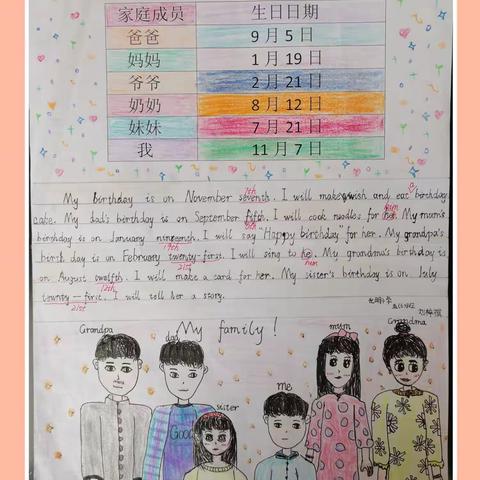 家庭成员 生日日期
爸爸 9月5日
妈妈 1月19日
爷爷 2月21日
奶奶 8月12日
妹妹 7月21日
我 11月7日
My Birthday is on November seventh. I will make wish and eat birthday
7th a
cake. My dad's birthday is on September fifth. I will cook noodles for her. My mum's
5th him
birthday is on January nineteenth. I will say "Happy birthday" for her. My grandpa's
19th
birth day is on February twenty-first. I will sing to he. My grandma's birthday is
21st him
on August twelfth. I will make a card for her. My sister's birthday is on July
12th
twenty-first. I will tell her a story.
21st
My family!
Grandpa
dad
sister
me
mum
Grandma
Good